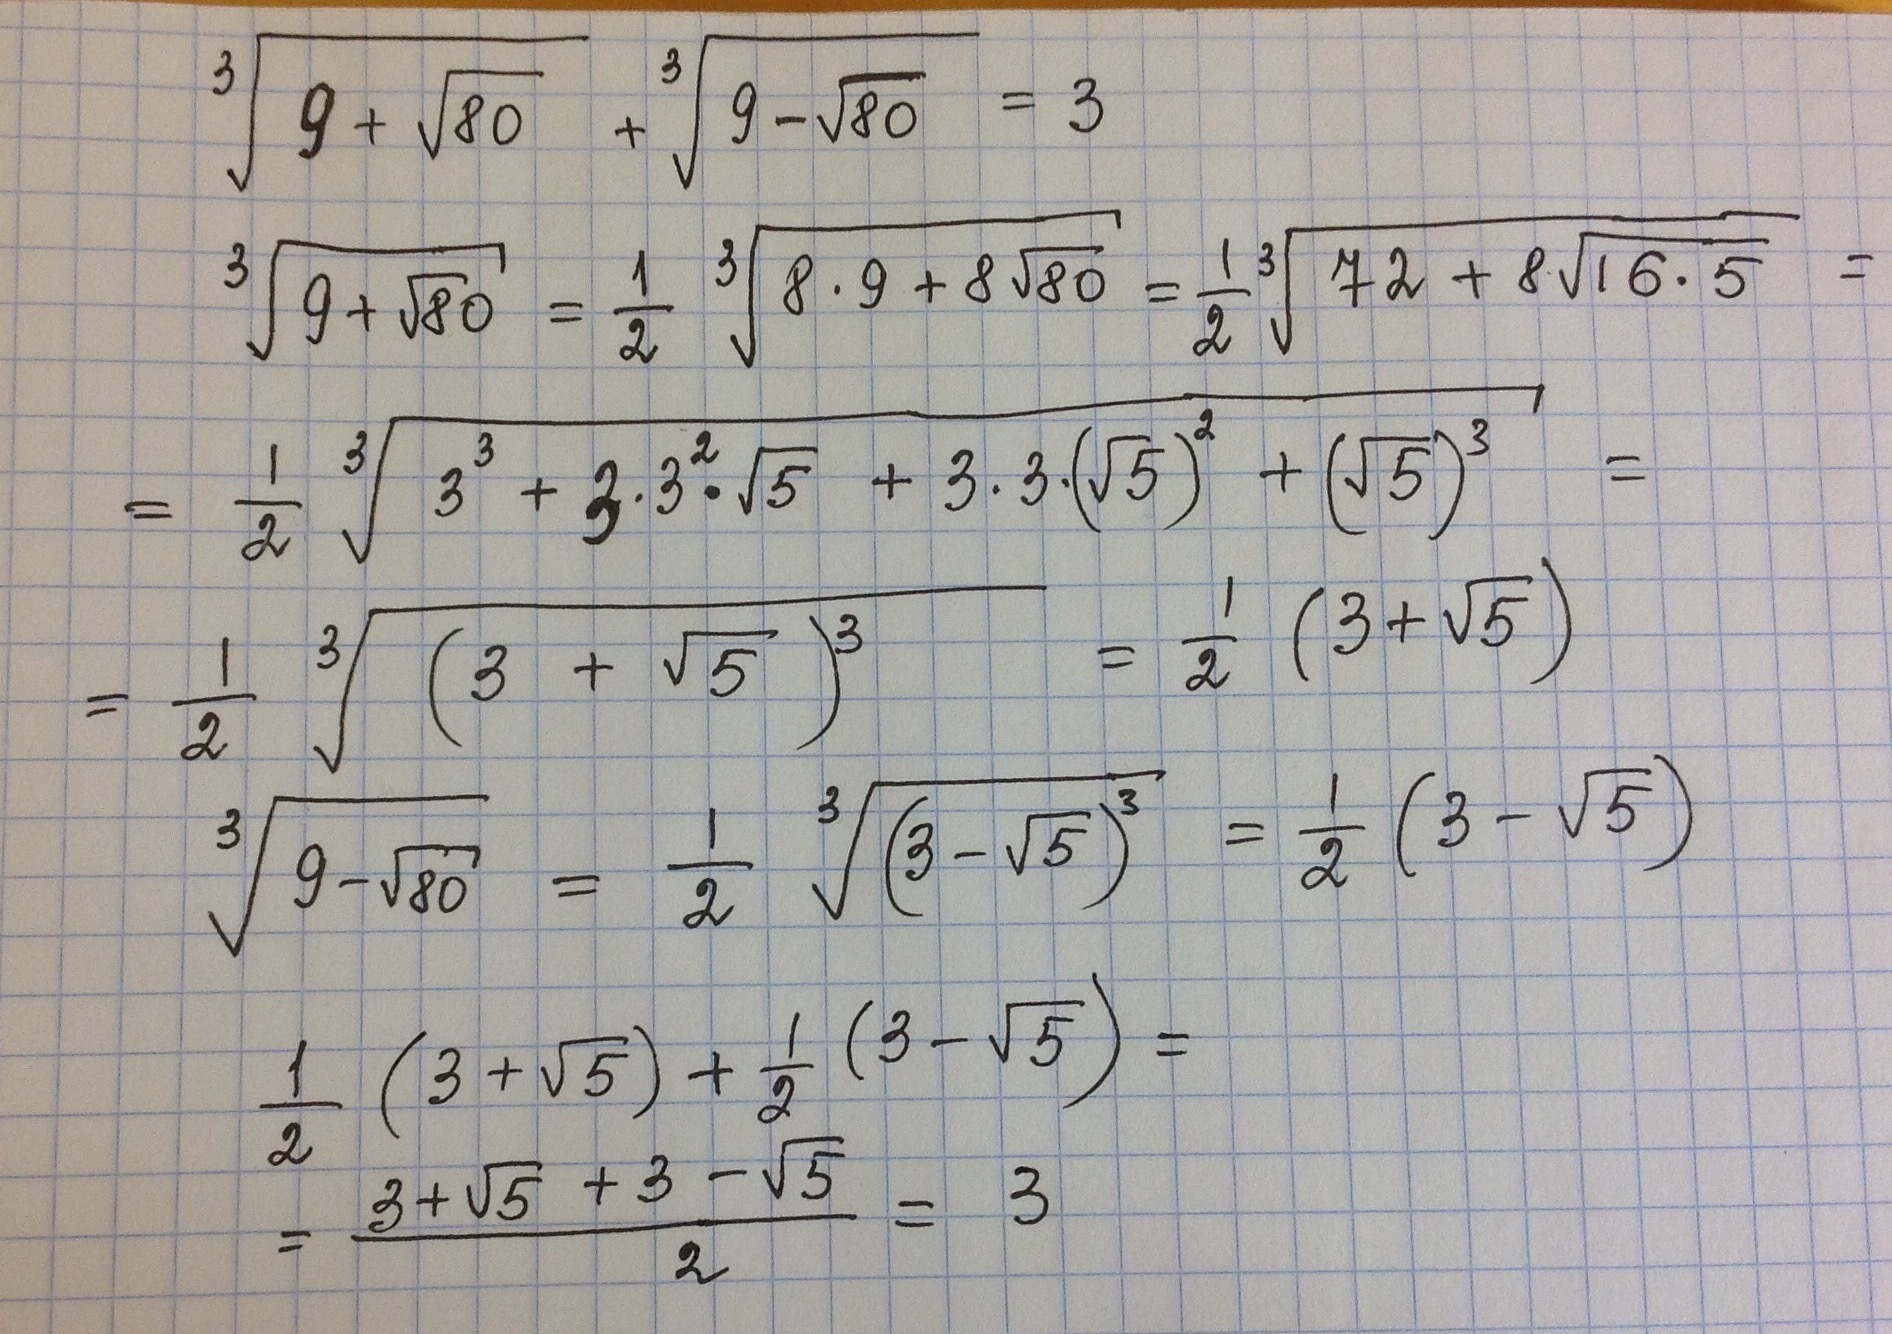 ∛(9 + √80) + ∛(9 − √80) = 3
∛(9 + √80) = 1/2 ∛(8 · 9 + 8√80) = 1/2 ∛(72 + 8√(16 · 5)) =
= 1/2 ∛(3³ + 3 · 3² · √5 + 3 · 3 · (√5)² + (√5)³) =
= 1/2 ∛((3 + √5)³) = 1/2 (3 + √5)
∛(9 − √80) = 1/2 ∛((3 − √5)³) = 1/2 (3 − √5)
1/2 (3 + √5) + 1/2 (3 − √5) =
= (3 + √5 + 3 − √5)/2 = 3